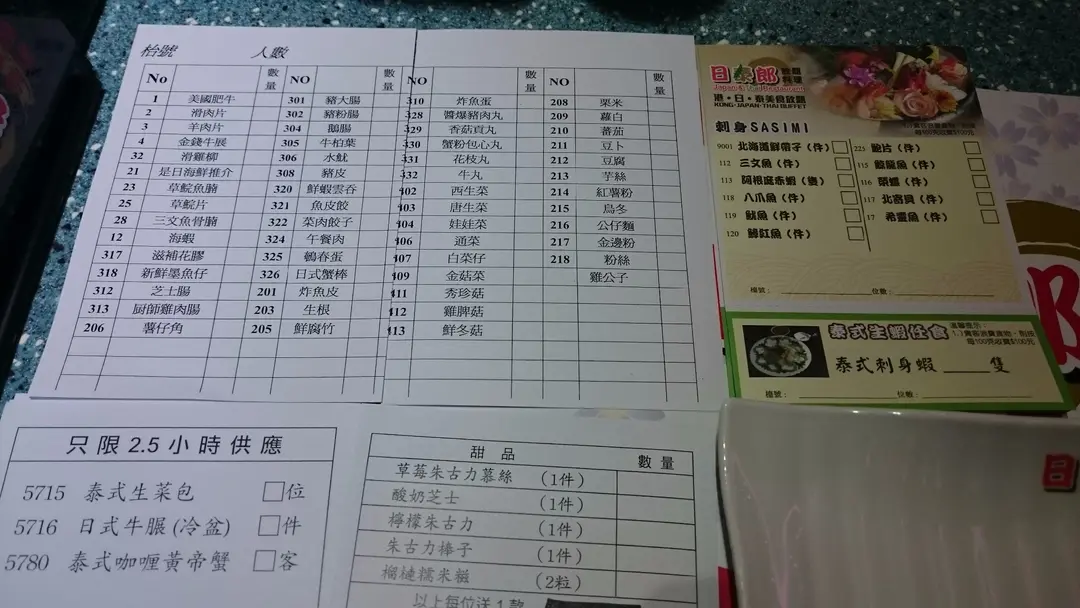 枱號 人數
No 數量 NO 數量
1 美國肥牛 301 豬大腸
2 滑肉片 302 豬粉腸
3 羊肉片 304 鵝腸
4 金錢牛展 305 牛柏葉
32 滑雞柳 306 水魷
21 是日海鮮推介 308 豬皮
23 草鯇魚腩 320 鮮蝦雲吞
25 草鯇片 321 魚皮餃
28 三文魚骨腩 322 菜肉餃子
12 海蝦 324 午餐肉
317 滋補花膠 325 鵪春蛋
318 新鮮墨魚仔 326 日式蟹棒
312 芝士腸 201 炸魚皮
313 厨師雞肉腸 203 生根
206 薯仔角 205 鮮腐竹
NO 數量 NO 數量
310 炸魚蛋 208 粟米
328 醬爆豬肉丸 209 蘿白
329 香菇貢丸 210 蕃茄
330 蟹粉包心丸 211 豆卜
331 花枝丸 212 豆腐
332 牛丸 213 芋絲
402 西生菜 214 紅薯粉
403 唐生菜 215 烏冬
404 娃娃菜 216 公仔麵
406 通菜 217 金邊粉
407 白菜仔 218 粉絲
409 金菇菜 雞公子
411 秀珍菇
412 雞脾菇
413 鮮冬菇
日泰郎
Japan & Thai Restaurant
港・日・泰美食放題
KONG·JAPAN·THAI BUFFET
刺身 SASIMI
每100克收費$100元
9001 北海道鮮帶子 (件) 223 鮑片 (件)
112 三文魚 (件) 115 鯨龍魚 (件)
113 阿根庭赤蝦 (隻) 116 翡螺 (件)
118 八爪魚 (件) 117 北寄貝 (件)
119 魷魚 (件) 17 希靈魚 (件)
120 鱘魟魚 (件)
檯號: 位數:
泰式生蝦任食
溫馨提示:
1.)貴客浪費食物、刺身
每100克收費$100元
泰式刺身蝦 隻
檯號: 位數:
郎
日
只限2.5小時供應
5715 泰式生菜包 位
5716 日式牛𦟌 (冷盆) 件
5780 泰式咖喱黃帝蟹 客
甜品 數量
草莓朱古力慕絲 (1件)
酸奶芝士 (1件)
檸檬朱古力 (1件)
朱古力捧子 (1件)
榴槤糯米糍 (2粒)
以上每位送1款